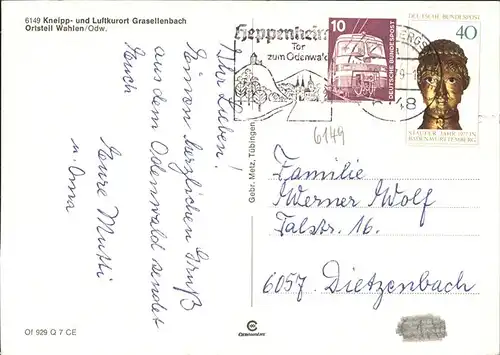 6149 Kneipp- und Luftkurort Grasellenbach
Ortsteil Wahlen/Odw.
Ihr Lieben!
Einen herzlichen Gruß
aus dem Odenwald sendet
Euch
Eure Mutti
u. Oma
Of 929 Q 7 CE
Gebr. Metz, Tübingen
Heppenheim
Tor
zum Odenwald
10
DEUTSCHE BUNDESPOST
DEUTSCHE BUNDESPOST
40
STAUFERJAHR 1977 IN
BADEN-WÜRTTEMBERG
48
6149
Familie
Werner Wolf
Talstr. 16.
6057. Dietzenbach